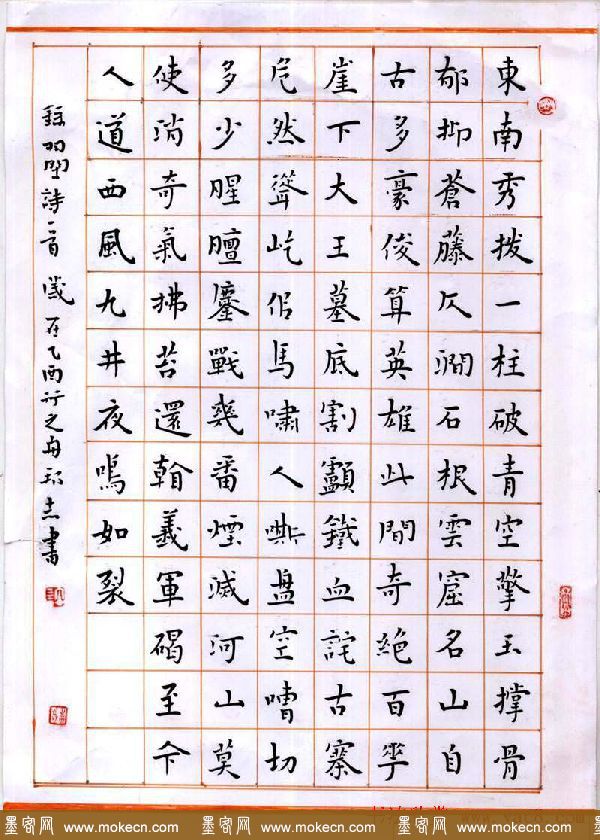 東南秀拨一柱破青空擎玉撑骨
郁抑蒼藤仄澗石根雲窟名山自
古多豪俊算英雄此間奇絕百
崖下大王墓底割顥鐵血詫古寨
危然聳屹侶馬嘯人嘶盘空嘈切
多少腥膻鏖戰幾番煙滅河山莫
使消奇氣拂苔還翰義軍碣至今
人道西風九井夜鳴如裂
詩一首 歲在乙酉 書
墨客网 www.mokecn.com 墨客网 www.mokecn.com 墨客网 www.mokecn.com